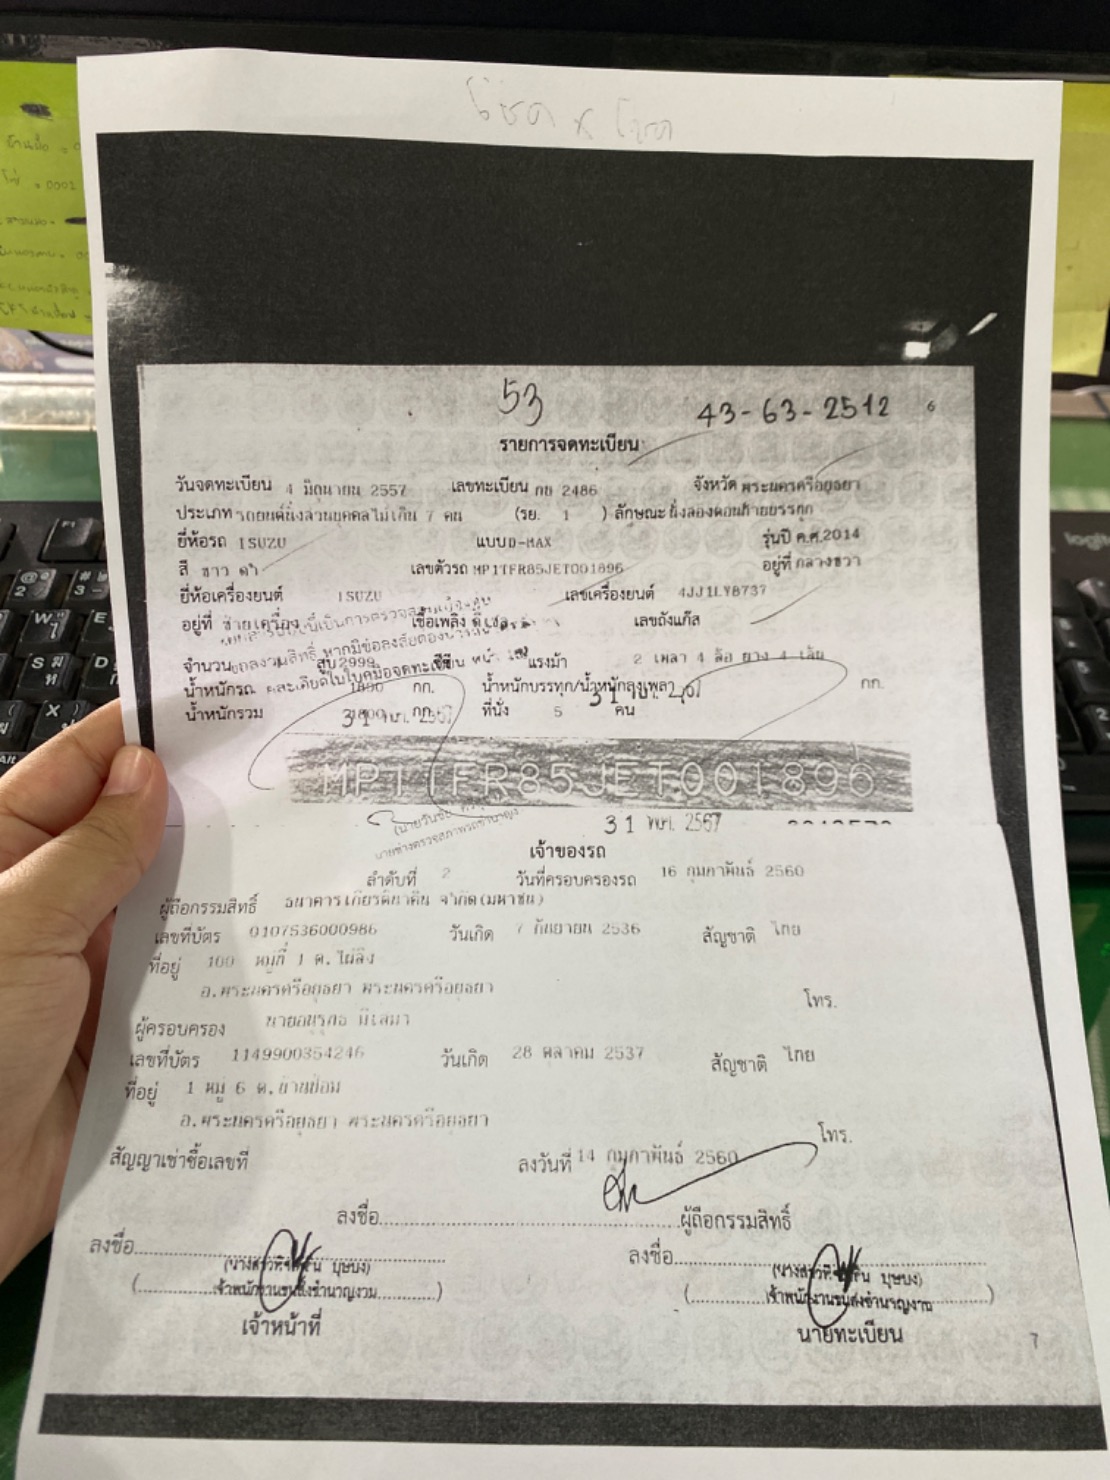 โชค x โชค
53
43-63-2512 6
รายการจดทะเบียน
วันจดทะเบียน 4 มิถุนายน 2557 เลขทะเบียน กบ 2486 จังหวัด พระนครศรีอยุธยา
ประเภท รถยนต์นั่งส่วนบุคคลไม่เกิน 7 คน (รย. 1 ) ลักษณะ นั่งสองตอนท้ายบรรทุก
ยี่ห้อรถ ISUZU แบบ D-MAX รุ่นปี ค.ศ.2014
สี ขาว ดำ เลขตัวรถ MP1TFR85JET001896 อยู่ที่ กลางขวา
ยี่ห้อเครื่องยนต์ ISUZU เลขเครื่องยนต์ 4JJ1LY8737
อยู่ที่ ซ้ายเครื่อง เชื้อเพลิง ดีเซล เลขถังแก๊ส
จำนวน สูบ 2999 ซีซี แรงม้า 2 เพลา 4 ล้อ ยาง 4 เส้น
น้ำหนักรถ 1800 กก. น้ำหนักบรรทุก/น้ำหนักลงเพลา กก.
น้ำหนักรวม 1800 กก. ที่นั่ง 5 คน
31 พ.ค. 2567
MP1TFR85JET001896
31 พ.ค. 2567
นายช่างตรวจสภาพรถชำนาญ
เจ้าของรถ
ลำดับที่ 2 วันที่ครอบครองรถ 16 กุมภาพันธ์ 2560
ผู้ถือกรรมสิทธิ์ ธนาคารเกียรตินาคิน จำกัด(มหาชน)
เลขที่บัตร 0107536000986 วันเกิด 7 กันยายน 2536 สัญชาติ ไทย
ที่อยู่ 100 หมู่ที่ 1 ต.ไผ่ลิง
อ.พระนครศรีอยุธยา พระนครศรีอยุธยา โทร.
ผู้ครอบครอง นายอนุรุทธ มีเสมา
เลขที่บัตร 1149900354246 วันเกิด 28 ตุลาคม 2537 สัญชาติ ไทย
ที่อยู่ 1 หมู่ 6 ต.บ้านป้อม
อ.พระนครศรีอยุธยา พระนครศรีอยุธยา โทร.
สัญญาเช่าซื้อเลขที่ ลงวันที่ 14 กุมภาพันธ์ 2560
ลงชื่อ ผู้ถือกรรมสิทธิ์
ลงชื่อ ลงชื่อ
บุษบง) บุษบง)
เจ้าพนักงานขนส่งชำนาญงาน เจ้าพนักงานขนส่งชำนาญงาน
เจ้าหน้าที่ นายทะเบียน 7